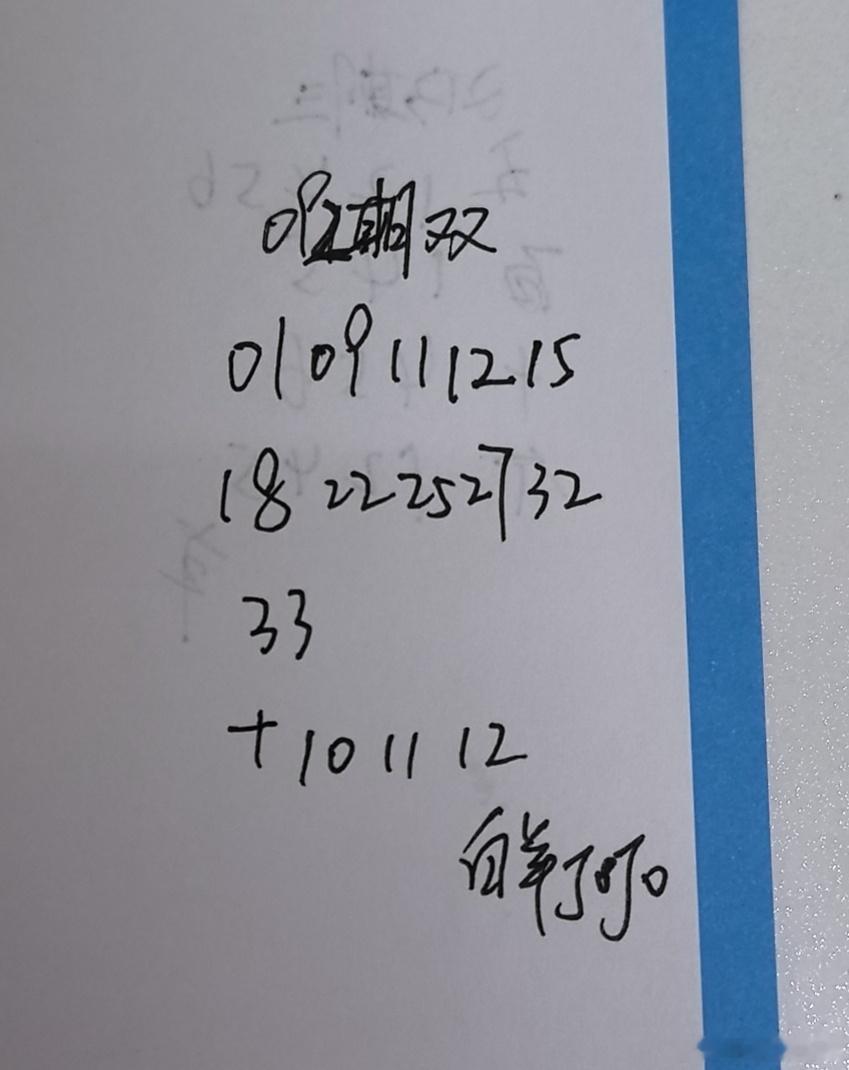 092期双
01 09 11 12 15
18 22 25 27 32
33
+ 10 11 12
白羊